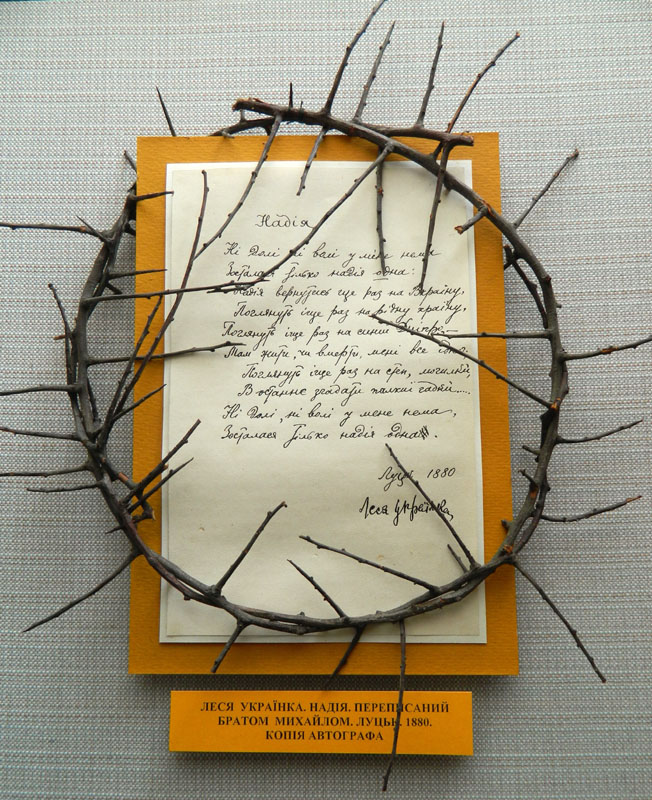 Надія
Ні долі, ні волі у мене нема
Зосталася тілько надія одна:
Надія вернутись ще раз на Вкраїну,
Поглянуть іще раз на рідну країну,
Поглянуть іще раз на синий Дніпро —
Там жити, чи вмерти, мені все одно.
Поглянуть іще раз на степ, могилки,
В останнє згадати палкиї гадки....
Ні долі, ні волі у мене нема,
Зосталася тілько надія одна.
Луцьк 1880
Леся Українка
ЛЕСЯ УКРАЇНКА. НАДІЯ. ПЕРЕПИСАНИЙ
БРАТОМ МИХАЙЛОМ. ЛУЦЬК. 1880.
КОПІЯ АВТОГРАФА